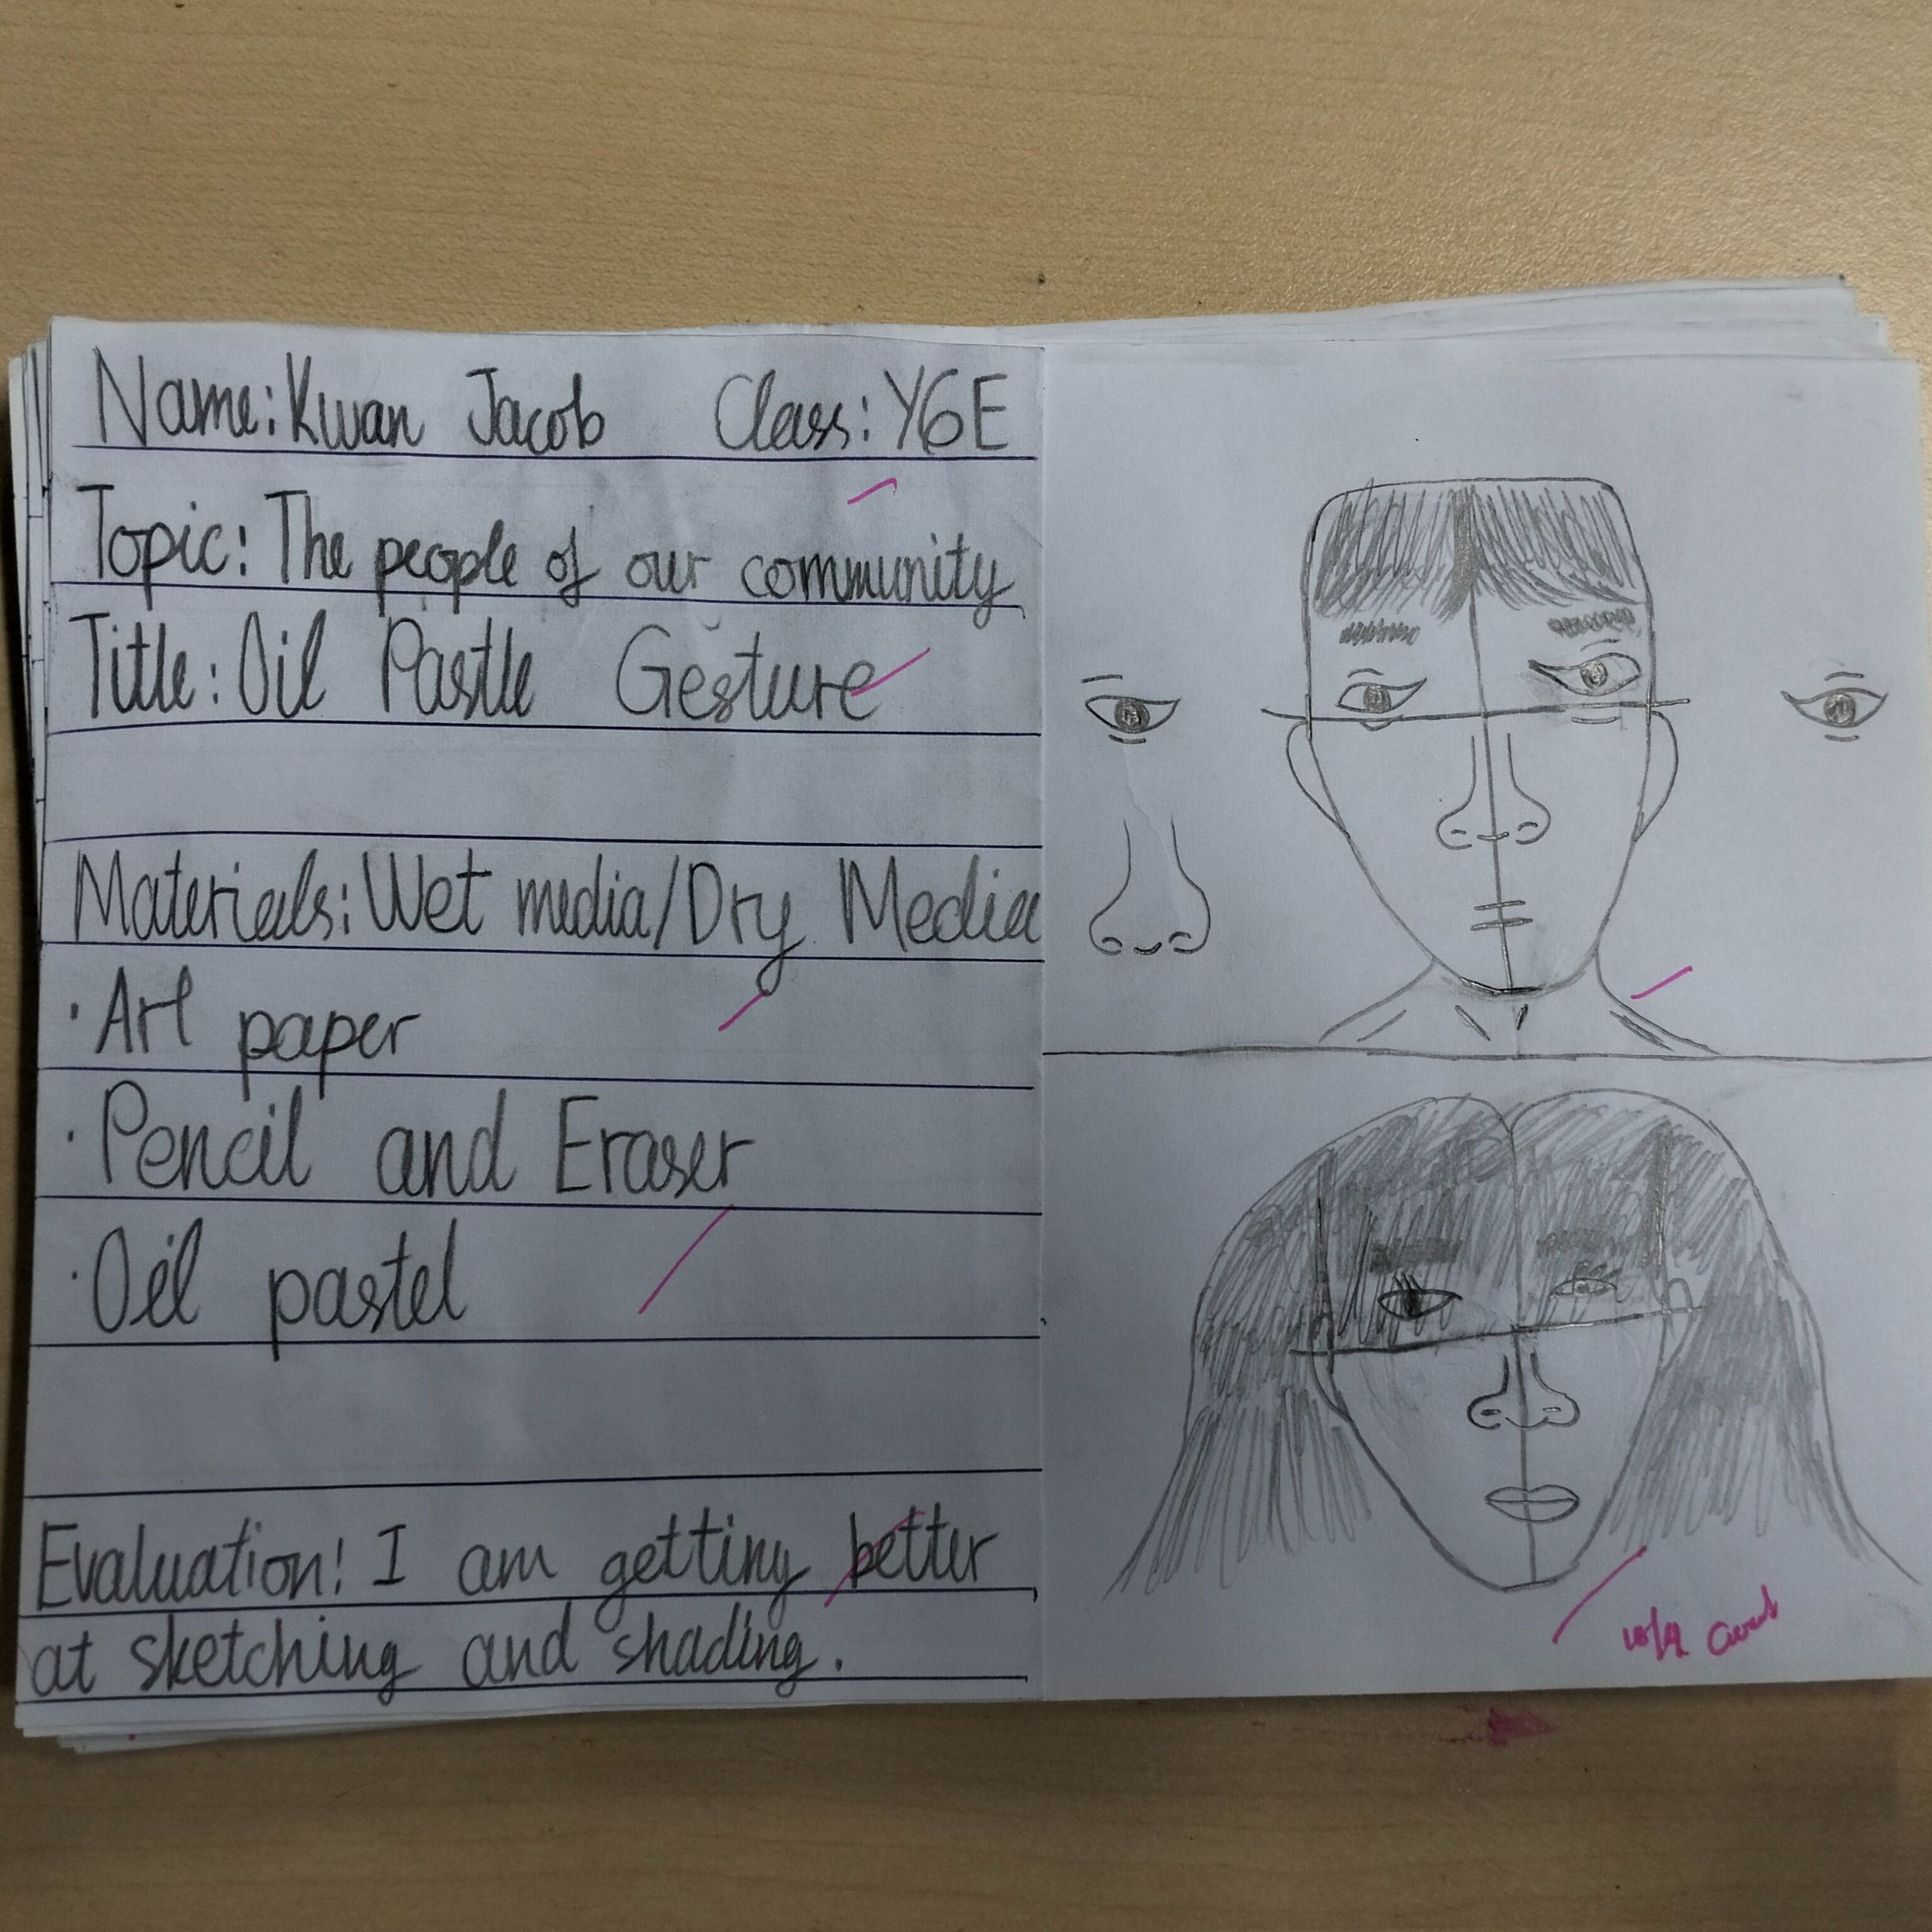 Name: Kwan Jacob Class: Y6E
Topic: The people of our community
Title: Oil Pastle Gesture
Materials: Wet media/Dry Media
· Art paper
· Pencil and Eraser
· Oil pastel
Evaluation: I am getting better
at sketching and shading.